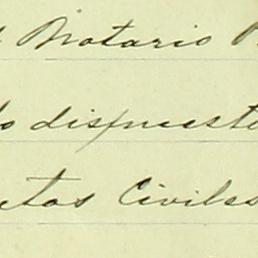 Notario
lo dispuesto
Civiles